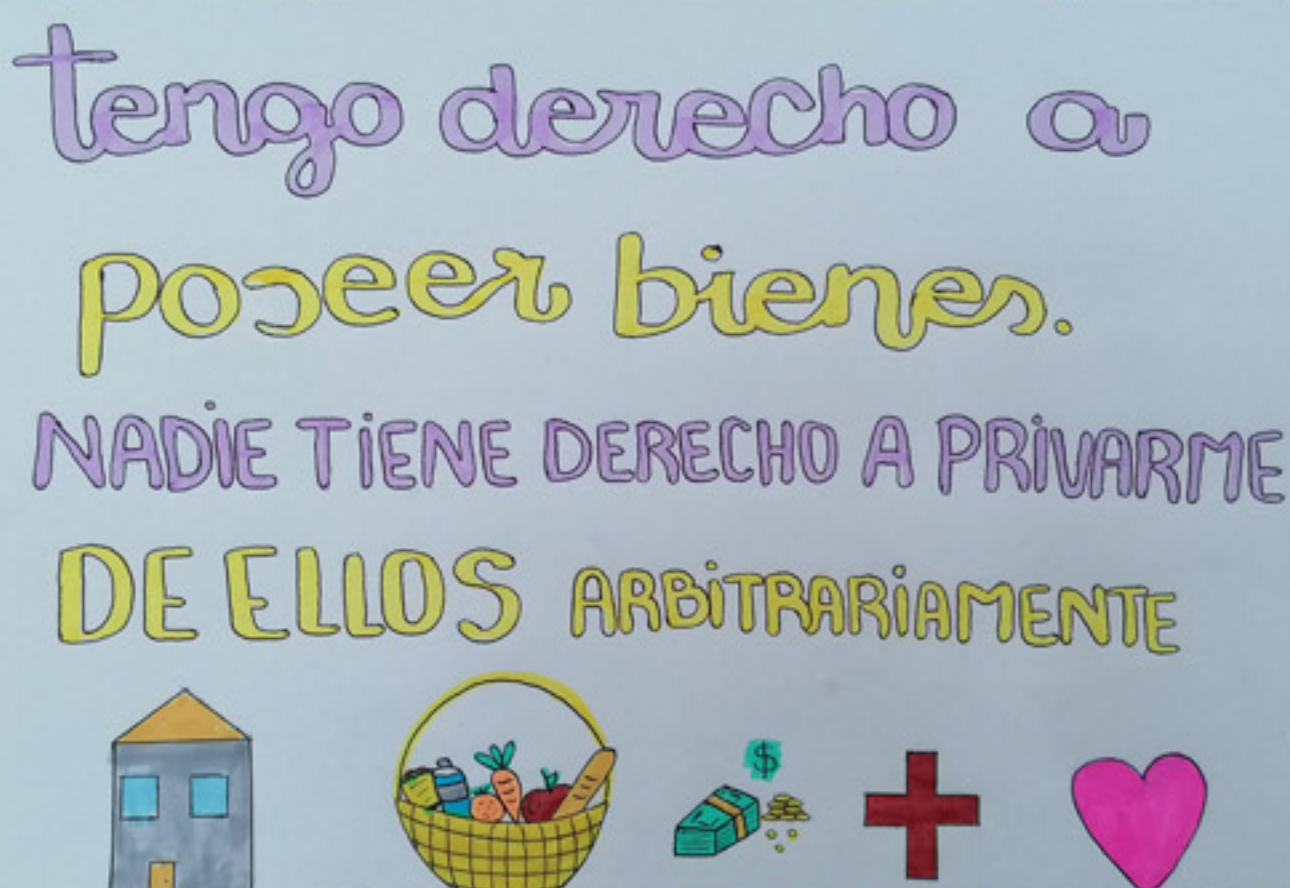 tengo derecho a
poseer bienes.
NADIE TIENE DERECHO A PRIVARME
DE ELLOS ARBITRARIAMENTE
$